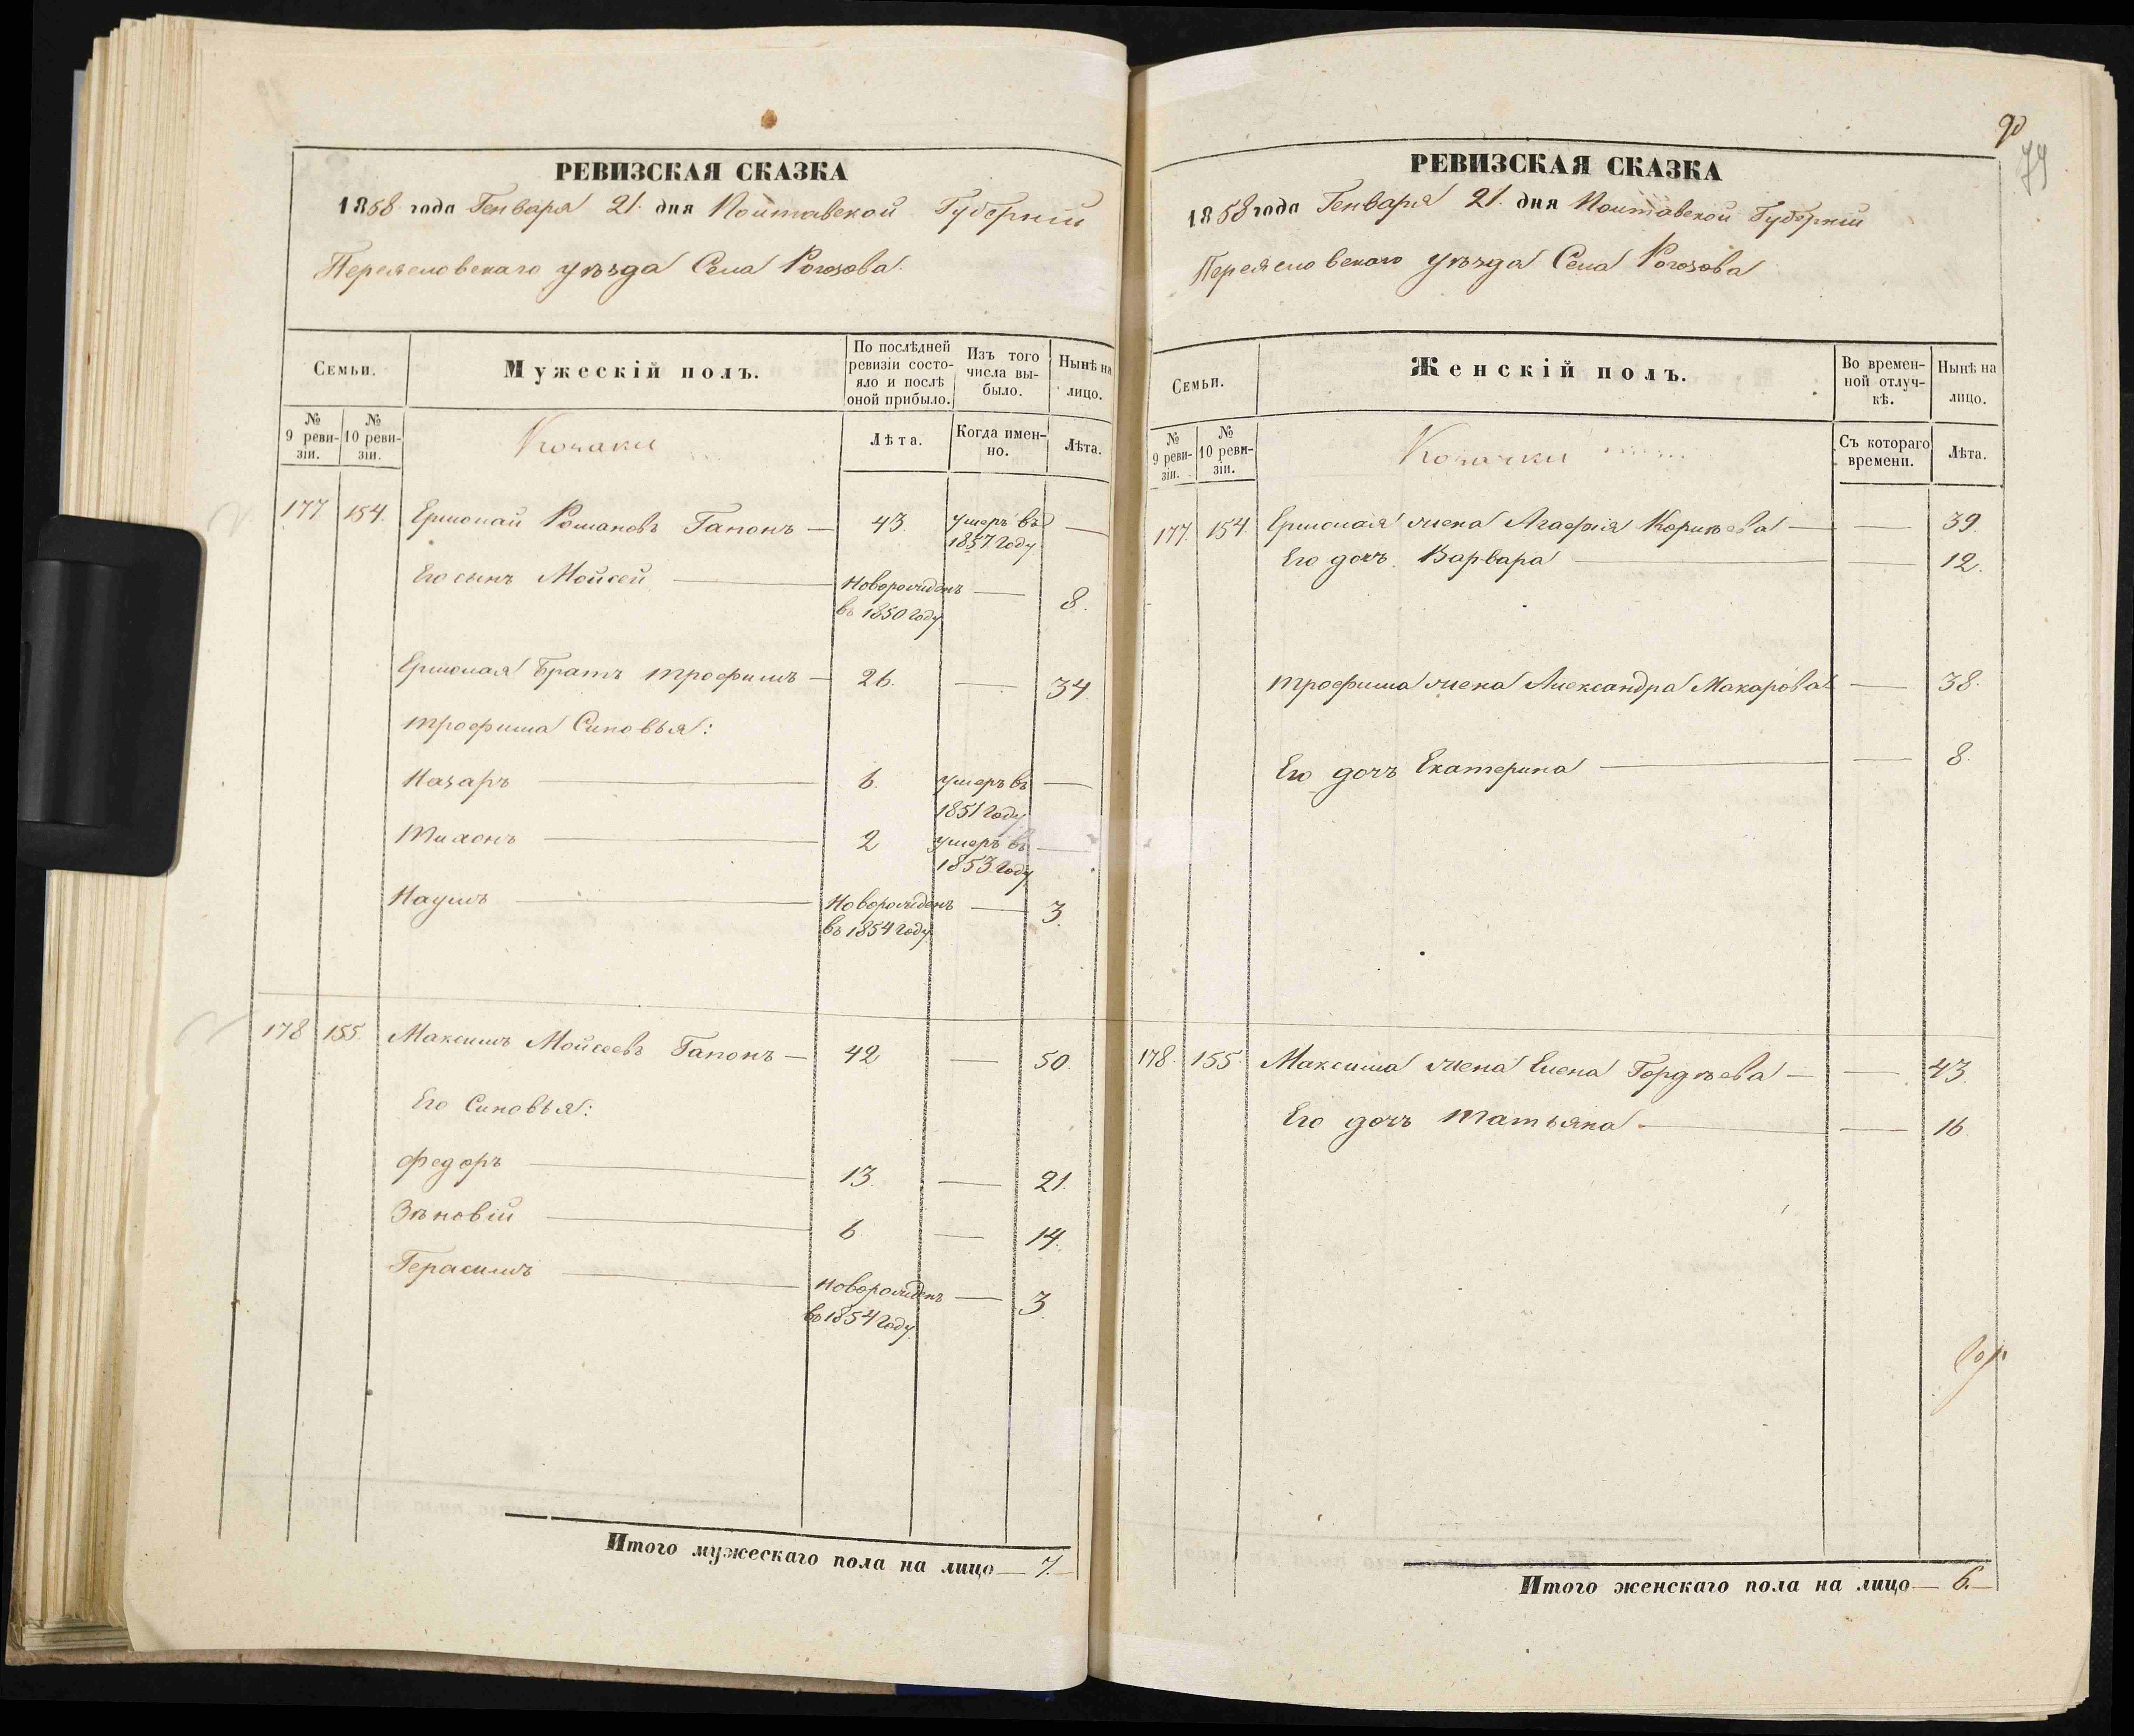 РЕВИЗСКАЯ СКАЗКА
1858 года Генваря 21. дня Полтавской Губерніи
Переясловскаго уѣзда Села Рогозова.
Семьи.
Мужескій полъ.
По послѣдней ревизіи состояло и послѣ оной прибыло.
Изъ того числа выбыло.
Нынѣ на лицо.
№ 9 ревизіи.
№ 10 ревизіи.
Козаки
Лѣта.
Когда именно.
Лѣта.
177 154. Ермолай Романовъ Гапонъ — 43. умеръ въ 1857 Году —
Его сынъ Мойсей — Новорожденъ въ 1850 Году — 8.
Ермолая Братъ Трофимъ — 26. — 34
Трофима Синовья:
Назаръ — 6. умеръ въ 1851 Году —
Тихонъ — 2 умеръ въ 1853 Году —
Наумъ — Новорожденъ въ 1854 Году — 3.
178 155. Максимъ Мойсеевъ Гапонъ — 42 — 50.
Его Синовья:
Федоръ — 13. — 21.
Зѣновій — 6 — 14.
Герасимъ — Новорожденъ въ 1854 Году — 3.
Итого мужескаго пола на лицо — 7. —
90
79
РЕВИЗСКАЯ СКАЗКА
1858 года Генваря 21. дня Полтавской Губерніи
Переясловскаго уѣзда Села Рогозова
Семьи.
Женскій полъ.
Во временной отлучкѣ.
Нынѣ на лицо.
№ 9 ревизіи.
№ 10 ревизіи.
Козачки
Съ котораго времени.
Лѣта.
177. 154 Ермолая жена Агафія Корнѣева — — 39.
Его дочь Варвара — — 12.
Трофима жена Александра Макарова — 38.
Его дочь Екатерина — — 8.
178. 155. Максима жена Елена Гордѣева — — 43.
Его дочь Татьяна — — 16
Итого женскаго пола на лицо — 6. —